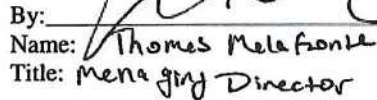 By:
Name: Thomas Melafronte
Title: Managing Director